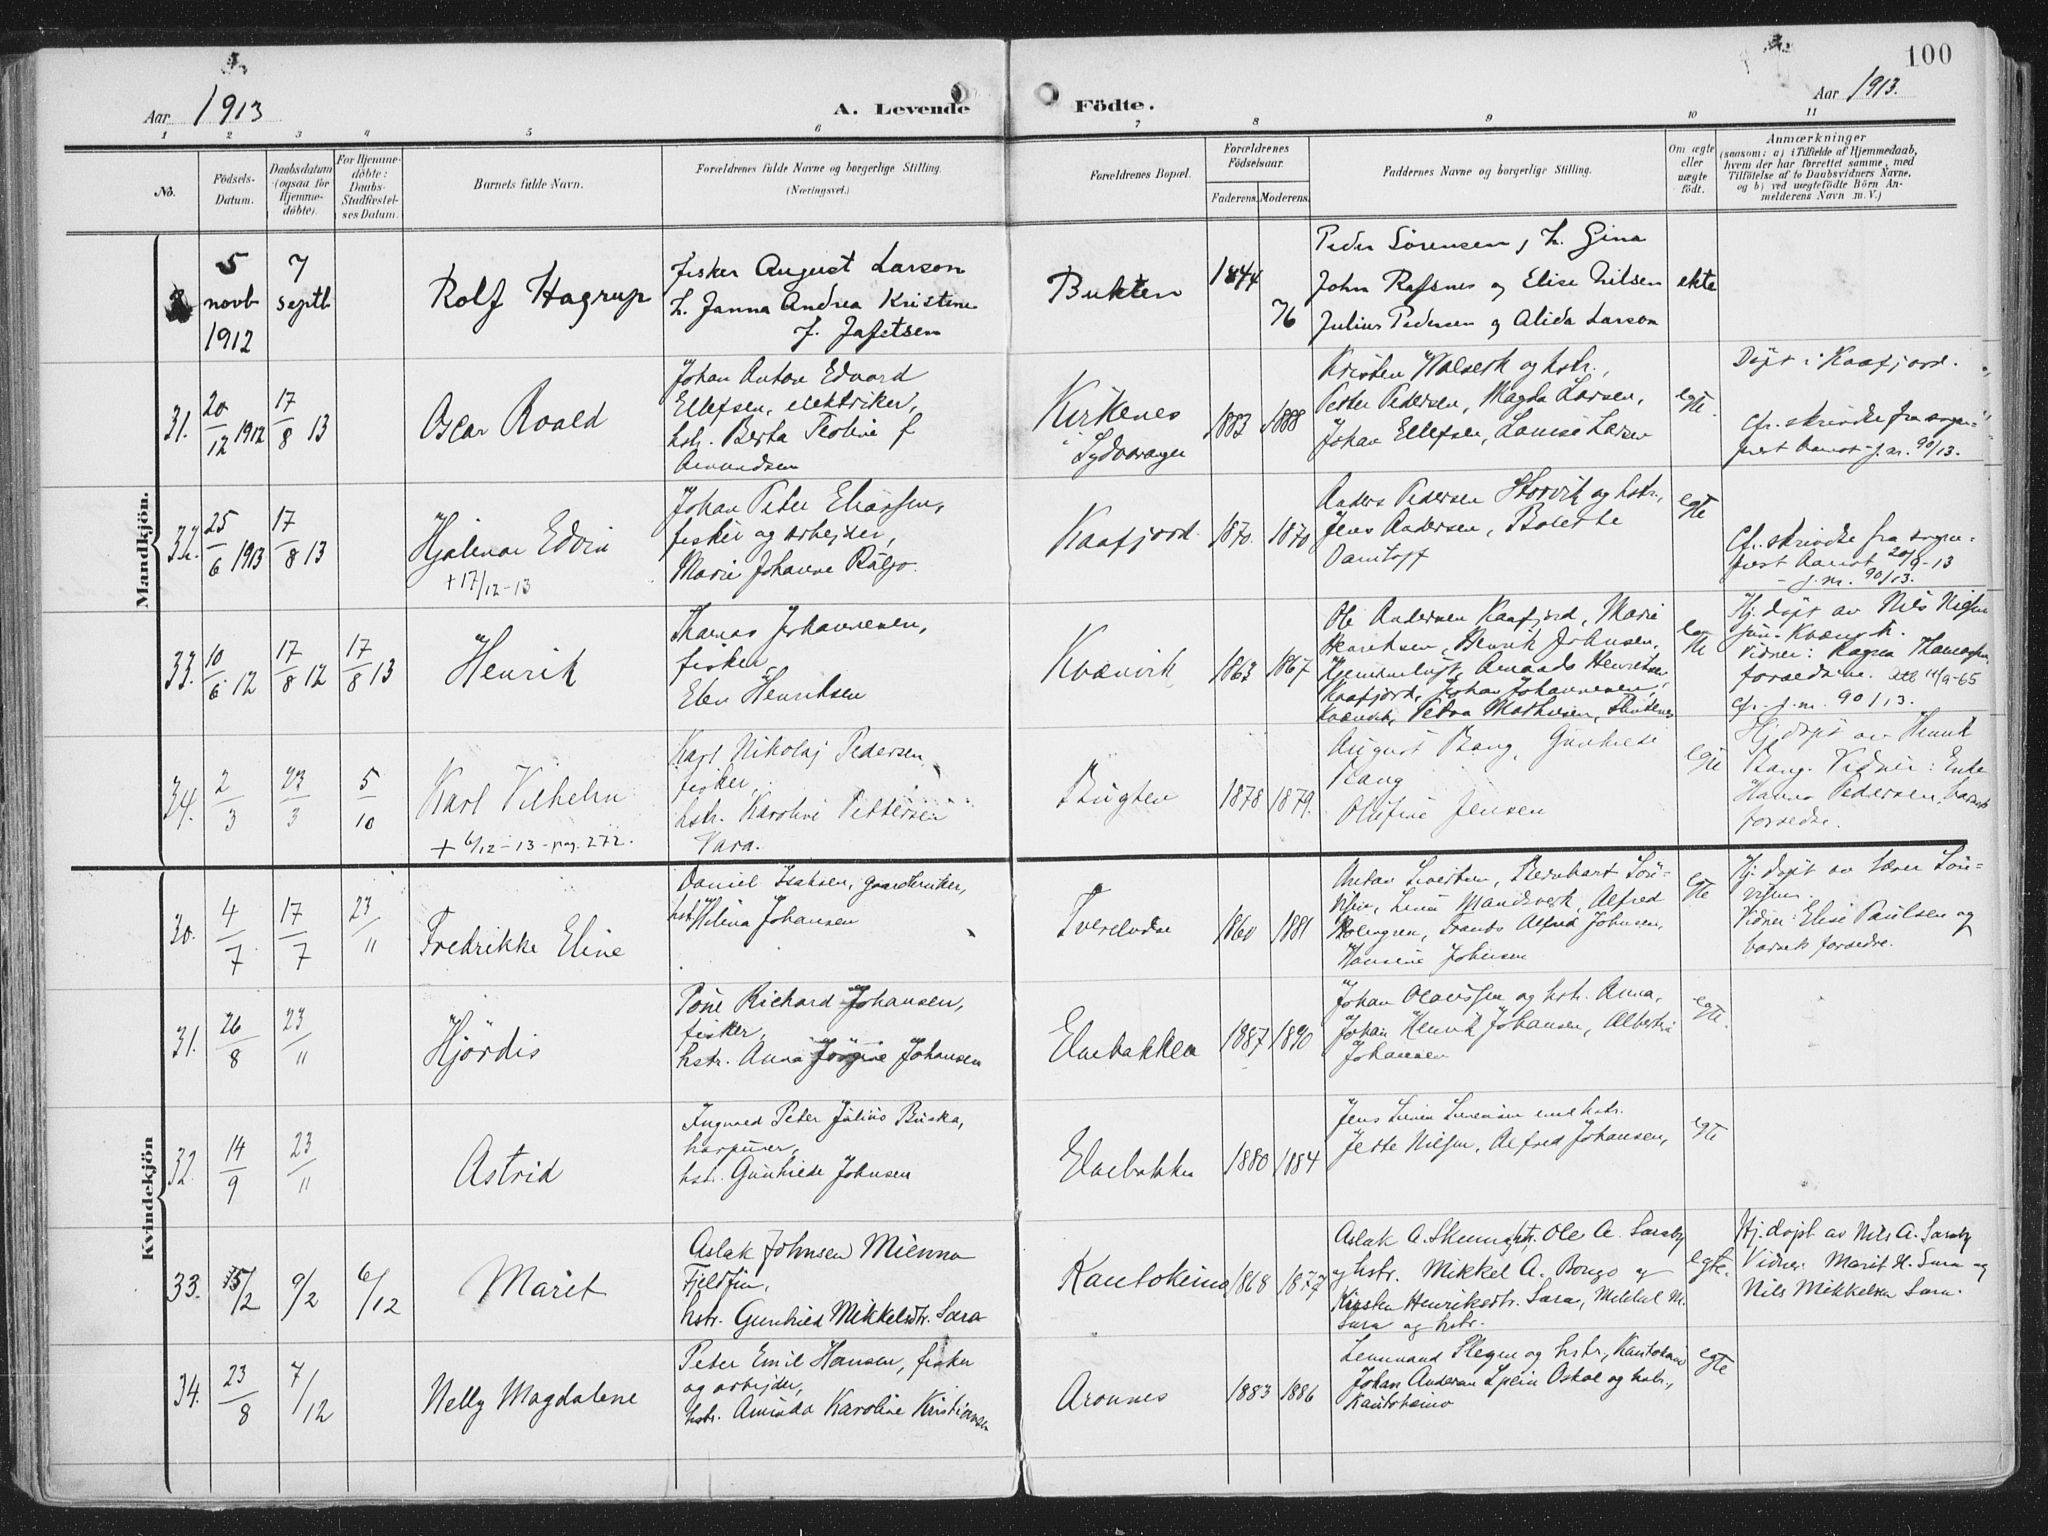 100
Aar 1913
A. Levende Födte.
Aar 1913.
1 2 3 4 5 6 7 8 9 10 11
No.
Födsels-
Datum.
Daabsdatum
(ogsaa for
Hjemme-
döbte).
For Hjemme-
döbte:
Daabs-
Stadfæstel-
ses Datum.
Barnets fulde Navn.
Forældrenes fulde Navne og borgerlige Stilling.
(Næringsvei.)
Forældrenes Bopæl.
Forældrenes
Födselsaar.
Faderens. Moderens.
Faddernes Navne og borgerlige Stilling.
Om ægte
eller
uægte
födt.
Anmærkninger
(saasom: a) i Tilfælde af Hjemmedaab,
hvem der har forrettet samme, med
Tilföielse af to Daabsvidners Navne,
og b) ved uægtefödte Börn An-
melderens Navn m. V.)
Mandkjön.
5
novb
1912
7
septb
Rolf Hagrup
fisker August Larson
h. Janna Andrea Kristine
f. Jafetsen
Bukten
1844
76
Peder Sörensen, h. Gina
John Rafsnes og Elise Nilsen
Julius Pedersen og Alida Larson
ekte
31.
20/12 1912
17/8 13
Oscar Roald
Johan Anton Edvard
Ellefsen, elektriker,
hstr. Berta Teoline f
Amundsen
Kirkenes
i Sydvaranger
1883
1888
Kristen Halseth og hstr.,
Petter Pedersen, Magda Larsen,
Johan Ellefsen, Louise Larsen
egte.
Döpt i Kaafjord.
Cfr. skrivelse fra sogne-
prest Aamot j.nr. 90/13.
32.
25/6 1913
17/8 13
Hjalmar Edvin
+ 17/12-13
Johan Peter Eliassen,
fisker og arbejder,
Marie Johanne
Kaafjord
1870.
1870
Anders Pedersen Storvik og hstr.,
Jens Andersen, Bolette
Damtoft
egte
Cfr. skrivelse fra sogne-
prest Aamot 20/9-13
- j.nr. 90/13.
33.
10/6 12
17/8 12
17/8 13
Henrik
Thomas Johannesen,
fisker,
Elen Henriksen
Kvænvik
1863
1867
Ole Andersen Kaafjord, Marie
Henriksen, Henrik Johnsen,
Hjemmeluft, Amanda Henriksen,
Kaafjord, Johan Johannesen,
Kvænvik, Petra Mathisen,
egte
Hj. döpt av Nils Nilsen
jun. Kvænvik.
Vidner: Ragna Thomassen,
forældrene. 11/9-65
cfr. j.nr. 90/13.
34.
2/3
23/3
5/10
Karl Vilhelm
+ 6/12-13-pag. 272.
Karl Nikolaj Pedersen
fisker,
hstr. Karoline Pettersen
Vara.
Bugten
1878
1879.
August Bang, Gunhild
Bang
Olufine Jensen
egte
Hj döpt av Henrik
Bang. Vidner: Enke
Hanna Pedersen, barnets
forældre.
Kvindekjön
30.
4/7
17/7
23/11
Fredrikke Eline
Daniel Isaksen, gaardbruker,
hstr. Helena Johansen
Tverelvdal
1860
1881
Anton Sivertsen, Bernhart
Alfred
Holmgren, Alfred Johnsen,
Hansine Johnsen
egte
Hj. döpt av
Vidner: Elise Paulsen og
barnets forældre.
31.
26/8
23/11
Hjördis
Richard Johansen,
fisker,
hstr. Anna Johansen
Elvebakken
1887
1890
Johan Olaussen og hstr. Anna,
Johan Henrik Johansen, Alberte
Johansen
egte.
32.
14/9
23/11
Astrid
Ingvald Peter Julius Buska,
harpuner,
hstr. Gunhilde Johnsen
Elvebakken
1880
1884
Jens
Jette Nilsen, Alfred Johansen,
egte
33.
15/2
9/2
6/12
Maret
Aslak Johnsen Mienna
Fjeldfin,
hstr. Gunhild Mikkelsdtr. Sara
Kautokeino
1868
1877
Aslak A. Skum, hstr, Ole A. Saraby
og hstr. Mikkel A. Bongo og
Kirsten Henriksdtr. Sara, Mikkel M.
Sara og hstr.
egte.
Hj. döpt av Nils A. Saraby
Vidner: Marit H. Sara og
Nils Mikkelsen Sara.
34.
23/8
7/12
Nelly Magdalene
Peter Emil Hansen, fisker
og arbejder,
hstr. Aminda Karoline Kristiansen
Aronnes
1883
1886
og hstr, Kautokeino
Johan Andersen og hstr.,
Kautokeino
egte